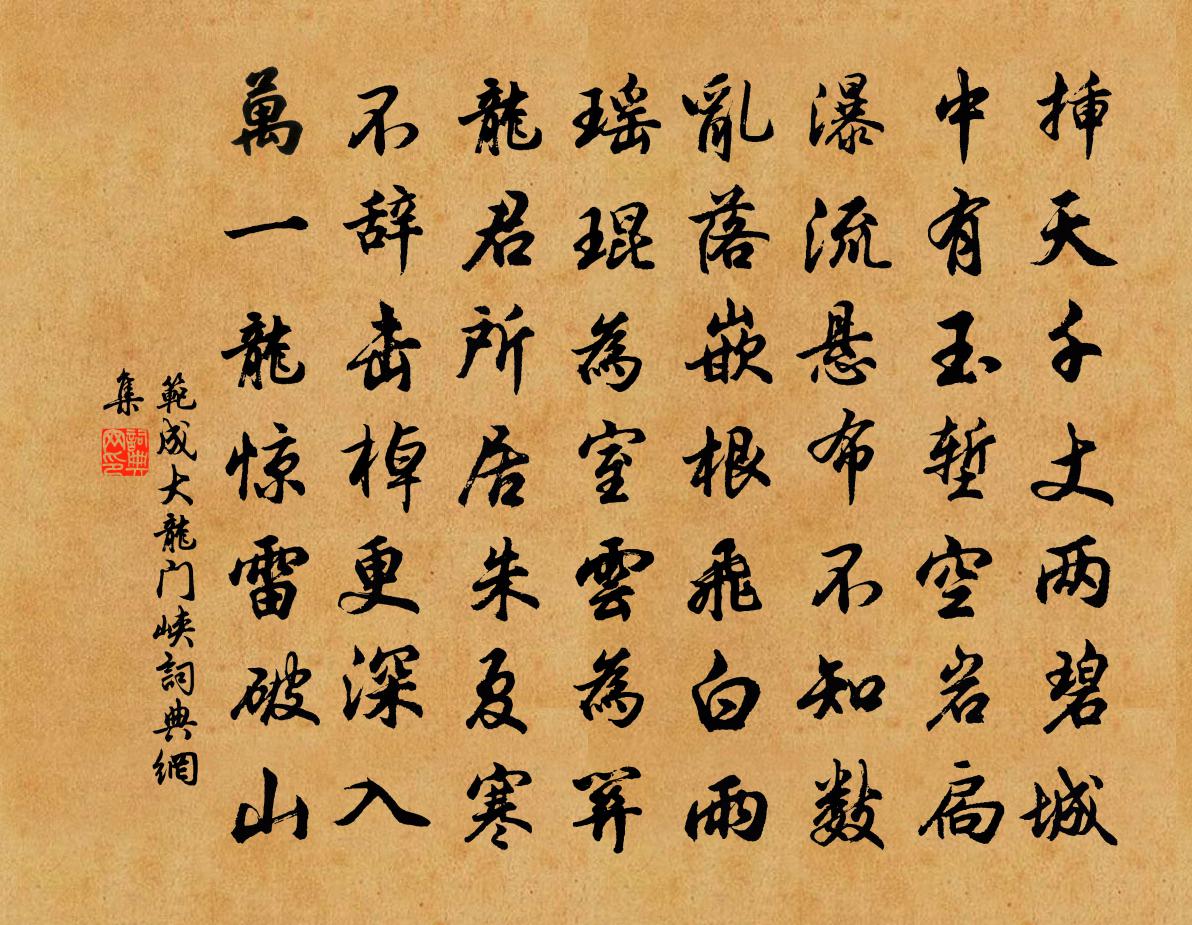 挿天千丈两碧城
中有玉堑空岩扃
瀑流悬布不知数
亂落嵌根飛白雨
瑶琨為室雲為屏
龍君所居朱夏寒
不辞击棹更深入
萬一龍惊雷破山
範成大龍门峡詞典網
集
詞典
网印